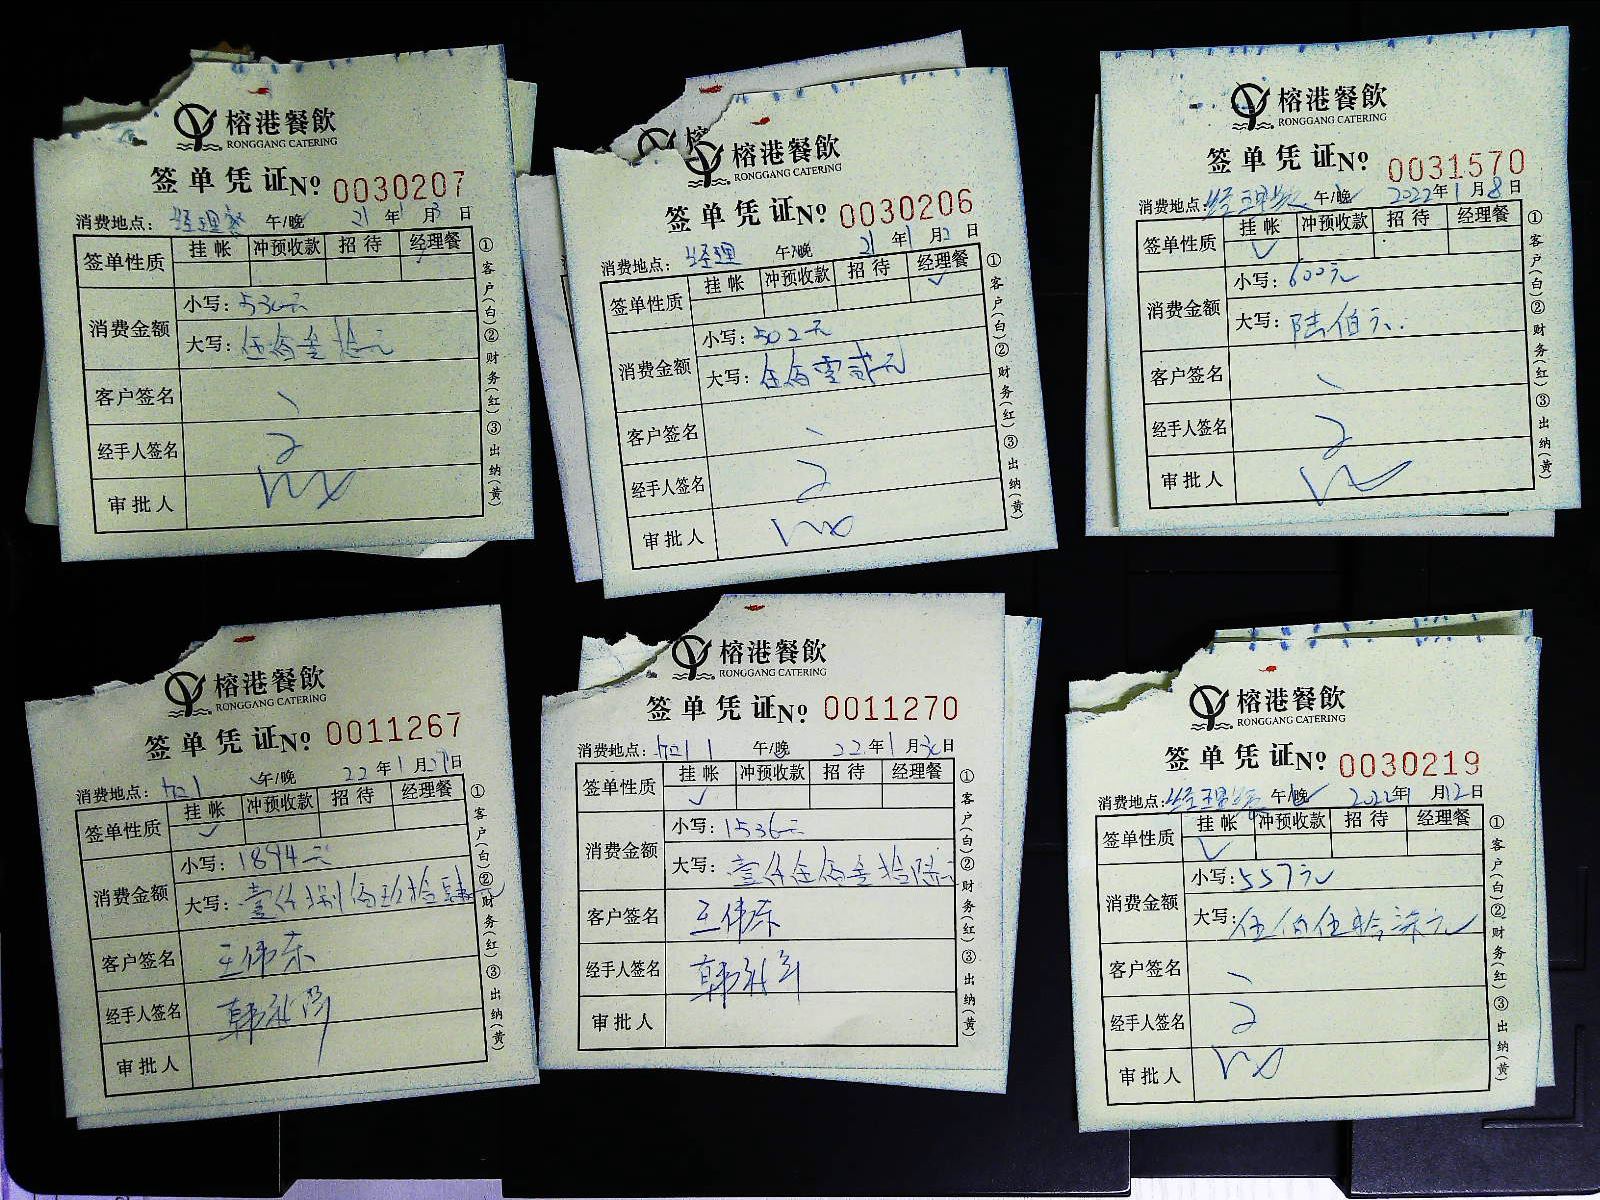 榕港餐飲
RONGGANG CATERING
签单凭证 No 0030207
消费地点: 经理餐 午/晚 21年1月3日
签单性质 挂帐 冲预收款 招待 经理餐 ✓
消费金额 小写: 530元
大写: 伍佰叁拾元
客户签名
经手人签名
审批人
①客户(白)②财务(红)③出纳(黄)
榕港餐飲
RONGGANG CATERING
签单凭证 No 0030206
消费地点: 经理 午/晚 21年1月2日
签单性质 挂帐 冲预收款 招待 经理餐 ✓
消费金额 小写: 502元
大写: 伍佰零贰元
客户签名
经手人签名
审批人
①客户(白)②财务(红)③出纳(黄)
榕港餐飲
RONGGANG CATERING
签单凭证 No 0031570
消费地点: 经理餐 午/晚 2022年1月8日
签单性质 挂帐 ✓ 冲预收款 招待 经理餐
消费金额 小写: 600元
大写: 陆佰元.
客户签名
经手人签名
审批人
①客户(白)②财务(红)③出纳(黄)
榕港餐飲
RONGGANG CATERING
签单凭证 No 0011267
消费地点: 午/晚 22年1月27日
签单性质 挂帐 ✓ 冲预收款 招待 经理餐
消费金额 小写: 1894元
大写: 壹仟捌佰玖拾肆元
客户签名 王伟东
经手人签名 韩
审批人
①客户(白)②财务(红)③出纳(黄)
榕港餐飲
RONGGANG CATERING
签单凭证 No 0011270
消费地点: 午/晚 22年1月30日
签单性质 挂帐 ✓ 冲预收款 招待 经理餐
消费金额 小写: 1536元
大写: 壹仟伍佰叁拾陆元
客户签名 王伟东
经手人签名 韩
审批人
①客户(白)②财务(红)③出纳(黄)
榕港餐飲
RONGGANG CATERING
签单凭证 No 0030219
消费地点: 经理餐 午/晚 2022年1月12日
签单性质 挂帐 ✓ 冲预收款 招待 经理餐
消费金额 小写: 557元
大写: 伍佰伍拾柒元
客户签名
经手人签名
审批人
①客户(白)②财务(红)③出纳(黄)